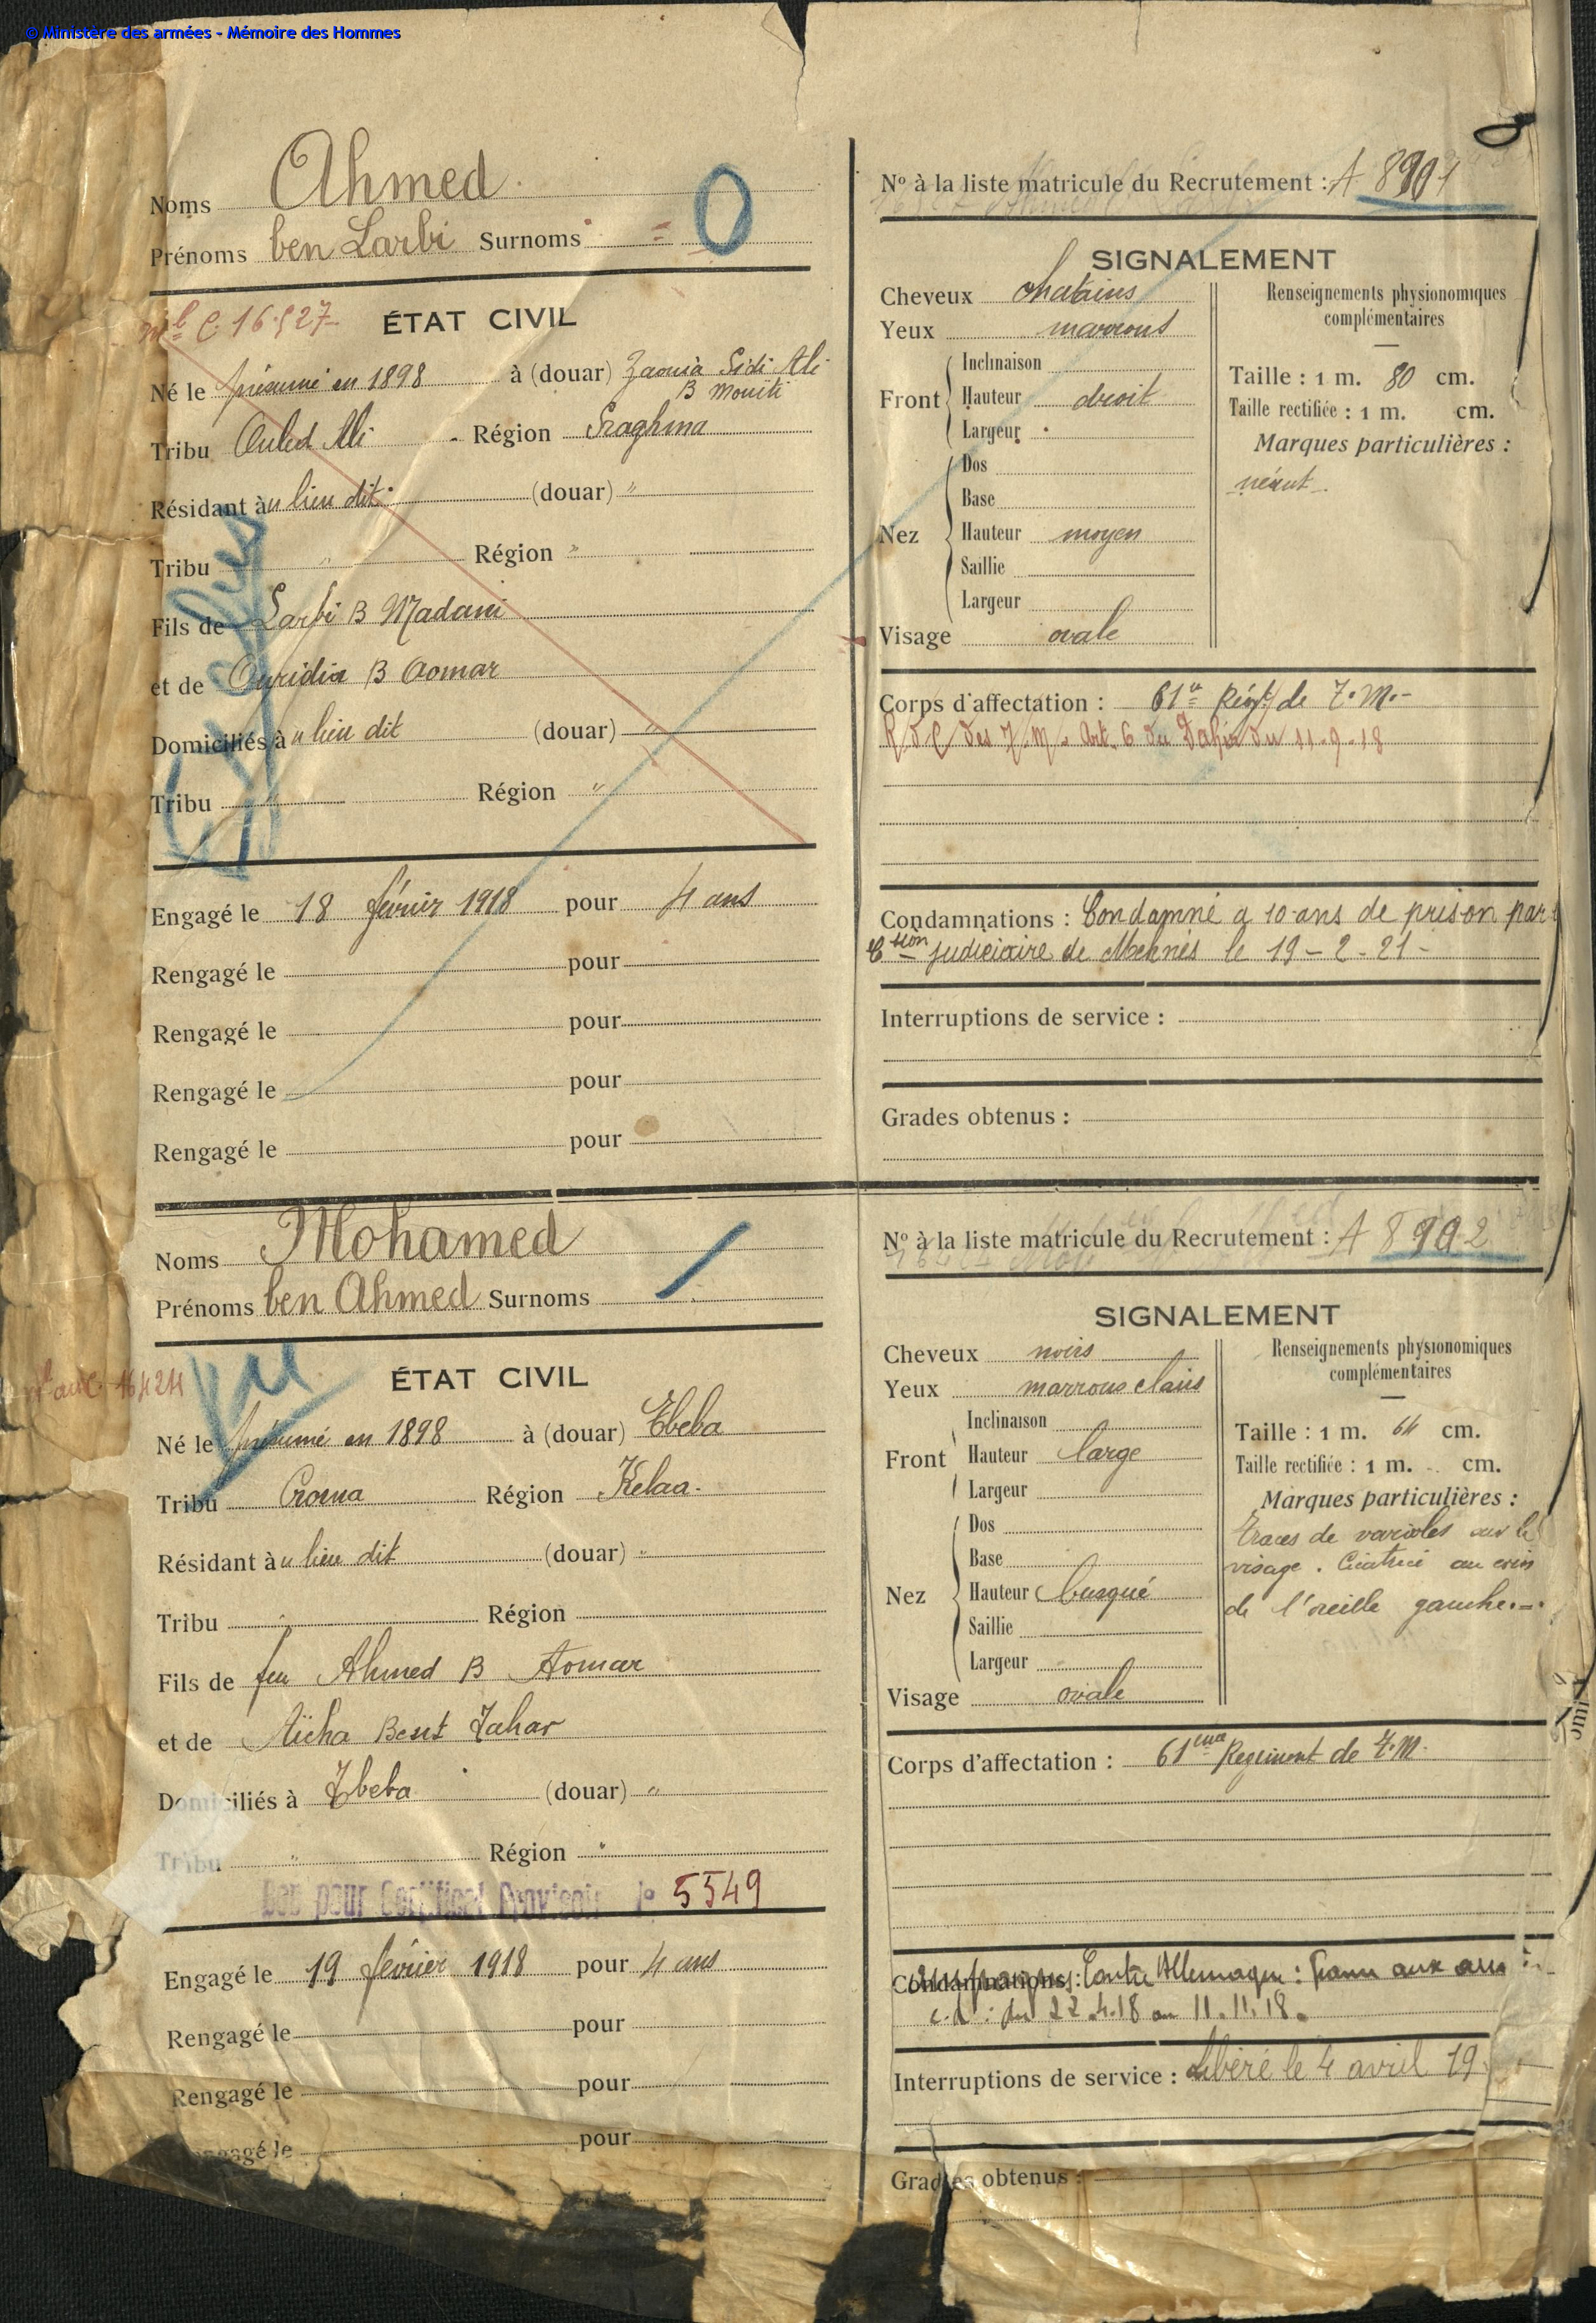 © Ministère des armées - Mémoire des Hommes
Noms Ahmed
Prénoms ben Larbi Surnoms =
0
ÉTAT CIVIL
Né le présumé en 1898 à (douar) Zaouia Sidi Ali
B Mouiti
Tribu Ouled Ali Région Sraghna
Résidant à u lieu dit (douar) "
Tribu " Région "
Fils de Larbi B Madani
et de Ouridia B Aomar
Domiciliés à u lieu dit (douar) "
Tribu " Région "
Engagé le 18 février 1918 pour 4 ans
Rengagé le pour
Rengagé le pour
Rengagé le pour
Rengagé le pour
No à la liste matricule du Recrutement : A 8901
SIGNALEMENT
Cheveux chatains
Yeux marrons
Front
Inclinaison
Hauteur droit
Largeur
Nez
Dos
Base
Hauteur moyen
Saillie
Largeur
Visage ovale
Renseignements physionomiques
complémentaires
Taille : 1 m. 80 cm.
Taille rectifiée : 1 m. cm.
Marques particulières :
néant
Corps d'affectation : 61e Régt de T.M.
R d C des T.M. Art. 6 du Dahir du 11-9-18
Condamnations : Condamné a 10 ans de prison par
judiciaire de Meknès le 19-2-21-
Interruptions de service :
Grades obtenus :
Noms Mohamed
Prénoms ben Ahmed Surnoms
Vu
ÉTAT CIVIL
Né le présumé en 1898 à (douar) Ebeba
Tribu Région Kelaa.
Résidant à u lieu dit (douar) "
Tribu Région
Fils de feu Ahmed B Aomar
et de Aïcha Bent Tahar
Domiciliés à (douar) "
Tribu " Région "
Bon pour Certificat Provisoire No 5549
Engagé le 19 février 1918 pour 4 ans
Rengagé le pour
Rengagé le pour
Rengagé le pour
No à la liste matricule du Recrutement : A 8902
SIGNALEMENT
Cheveux noirs
Yeux marrons clairs
Front
Inclinaison
Hauteur large
Largeur
Nez
Dos
Base
Hauteur busqué
Saillie
Largeur
Visage ovale
Renseignements physionomiques
complémentaires
Taille : 1 m. 64 cm.
Taille rectifiée : 1 m. cm.
Marques particulières :
traces de varioles sur le
visage. Cicatrice au coin
de l'oreille gauche.=.
Corps d'affectation : 61eme Regiment de T.M.
Condamnations : Contre Allemagne : aux
du 22.4.18 au 11.11.18.
Interruptions de service : Libéré le 4 avril 19
Grades obtenus :